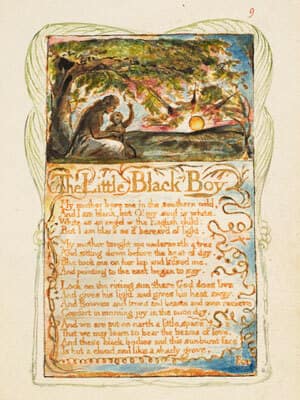 9
The Little Black Boy
My mother bore me in the southern wild,
And I am black, but O! my soul is white.
White as an angel is the English child:
But I am black as if bereav'd of light.
My mother taught me underneath a tree
And sitting down before the heat of day,
She took me on her lap and kissed me,
And pointing to the east began to say.
Look on the rising sun: there God does live
And gives his light, and gives his heat away.
And flowers and trees and beasts and men recieve
Comfort in morning joy in the noon day.
And we are put on earth a little space,
That we may learn to bear the beams of love,
And these black bodies and this sunburnt face
Is but a cloud, and like a shady grove.